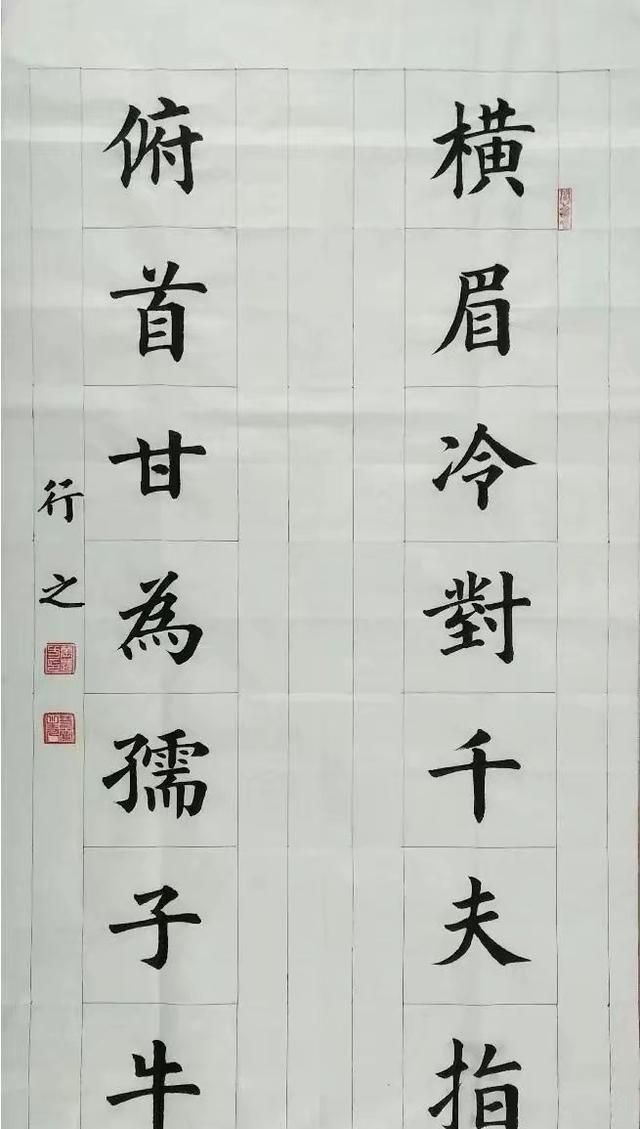 橫眉冷對千夫指
俯首甘為孺子牛
行之